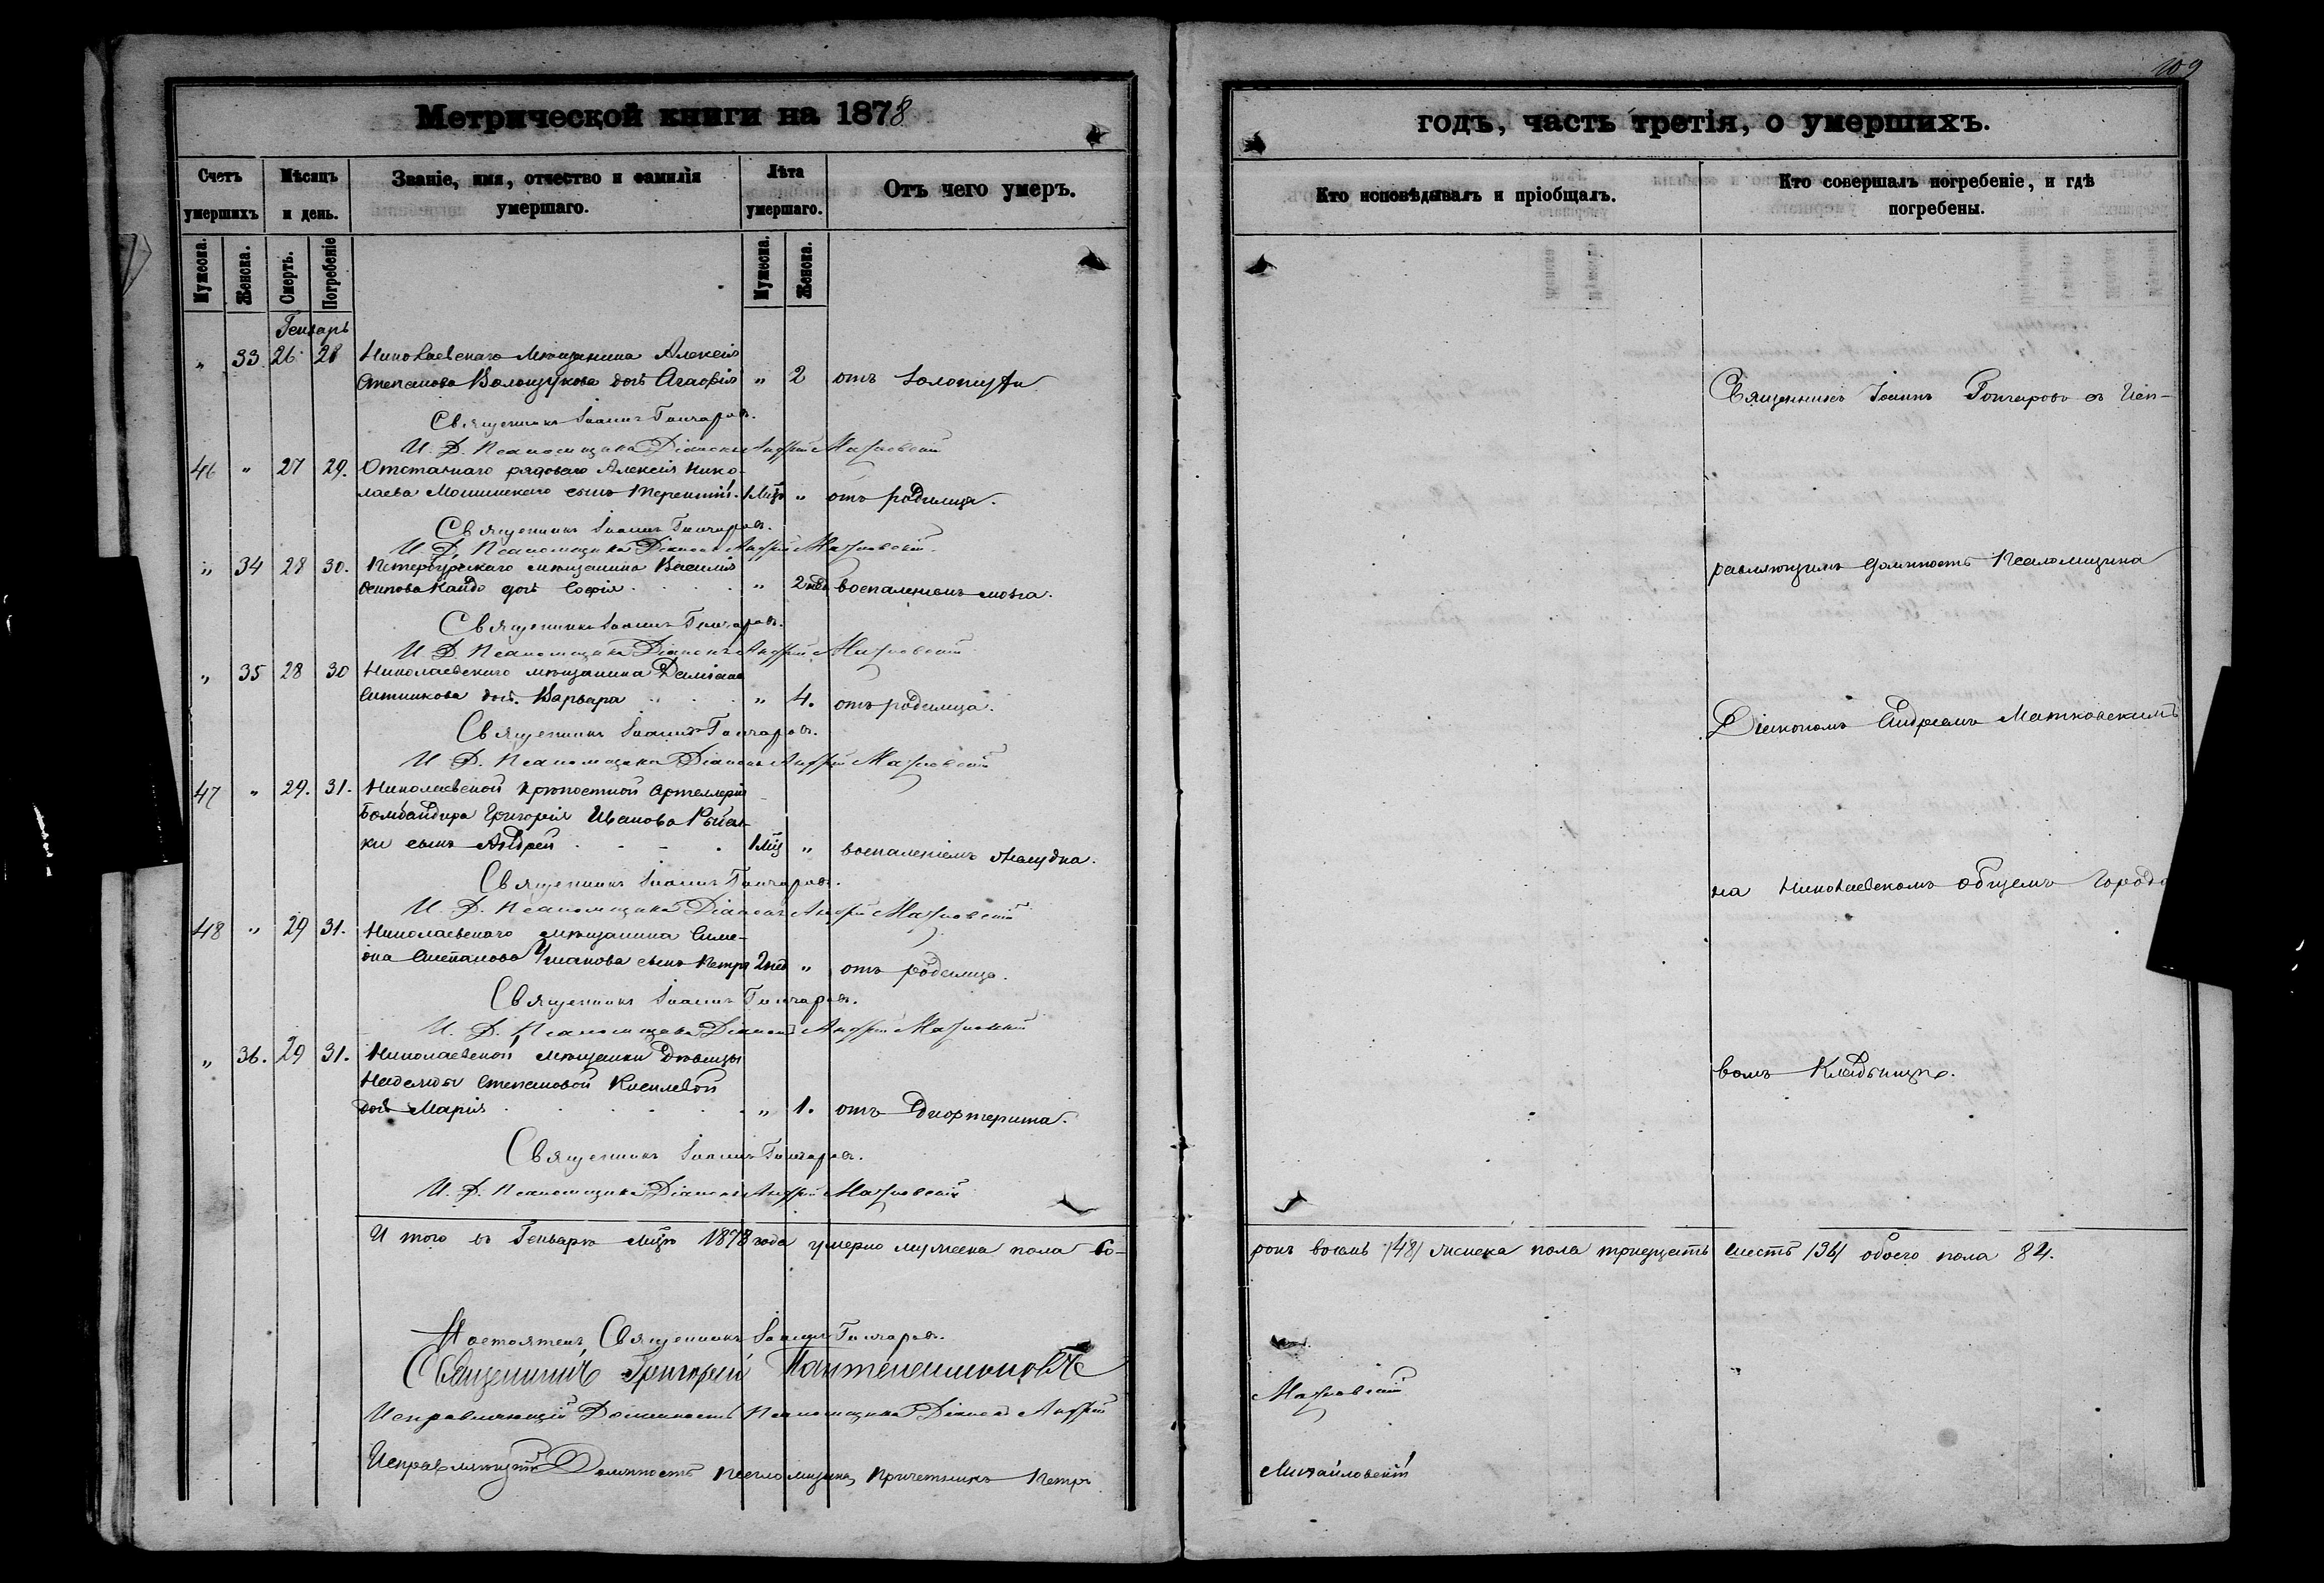 109
Метрической книги на 1878
годъ, часть третія, о умершихъ.
Счетъ умершихъ
Мѣсяцъ и день.
Званіе, имя, отчество и фамилія умершаго.
Лѣта умершаго.
Отъ чего умеръ.
Кто исповѣдывалъ и пріобщалъ.
Кто совершалъ погребеніе, и гдѣ погребены.
Мужеска. Женска. Смерть. Погребеніе Мужеска. Женска.
Генварь
" 33. 26 28 Николаевскаго мѣщанина Алексія
Степанова дочь Агафія " 2 отъ золотухи
Священникъ Іоаннъ Гончаровъ.
И. Д. Псаломщика Діаконъ Андрей Матковскій
46 " 27 29. Отставнаго рядоваго Алексія Нико-
лаева сынъ Терентій. 1 мѣс " отъ родимца.
Священникъ Іоаннъ Гончаровъ.
И. Д. Псаломщика Діаконъ Андрей Матковскій
" 34 28 30. мѣщанина Василія
Осипова дочь Софія " 2 нед воспаленіемъ мозга.
Священникъ Іоаннъ Гончаровъ.
И. Д. Псаломщика Діаконъ Андрей Матковскій
" 35 28 30 Николаевскаго мѣщанина Даміана
Ситникова доч. Варвара " 4. отъ родимца.
Священникъ Іоаннъ Гончаровъ.
И. Д. Псаломщика Діаконъ Андрей Матковскій
47 " 29. 31. Николаевской крѣпостной артиллеріи
Бомбандира Григорія Иванова
ки сынъ Андрей 1 мѣс " воспаленіемъ желудка.
Священникъ Іоаннъ Гончаровъ.
И. Д. Псаломщика Діаконъ Андрей Матковскій
48 " 29 31. Николаевскаго мѣщанина Симе-
она Степанова сынъ Петръ 2 нед " отъ родимца.
Священникъ Іоаннъ Гончаровъ.
И. Д. Псаломщика Діаконъ Андрей Матковскій
" 36. 29 31. Николаевской мѣщанки Дѣвицы
Надежды Степановой Киселевой
дочь Марія " 1. отъ дифтерита.
Священникъ Іоаннъ Гончаровъ.
И. Д. Псаломщика Діаконъ Андрей Матковскій
Священникъ Іоаннъ Гончаровъ съ Исп-
равляющимъ должность Псаломщика
Діакономъ Андреемъ Матковскимъ
на Николаевскомъ общемъ Городо
вомъ Кладбищѣ.
И того въ Генварѣ мѣсѣ 1878 года умерло мужеска пола со-
рокъ восемь /48/ женска пола тридцать шесть /36/ обоего пола 84.
Настоятель, Священникъ Іоаннъ Гончаровъ.
Священникъ Григорій
Исправляющій Должность Псаломщика Діаконъ Андрей
Матковскій
Исправляющій Должность псаломщика, причетникъ Петръ
Михайловскій